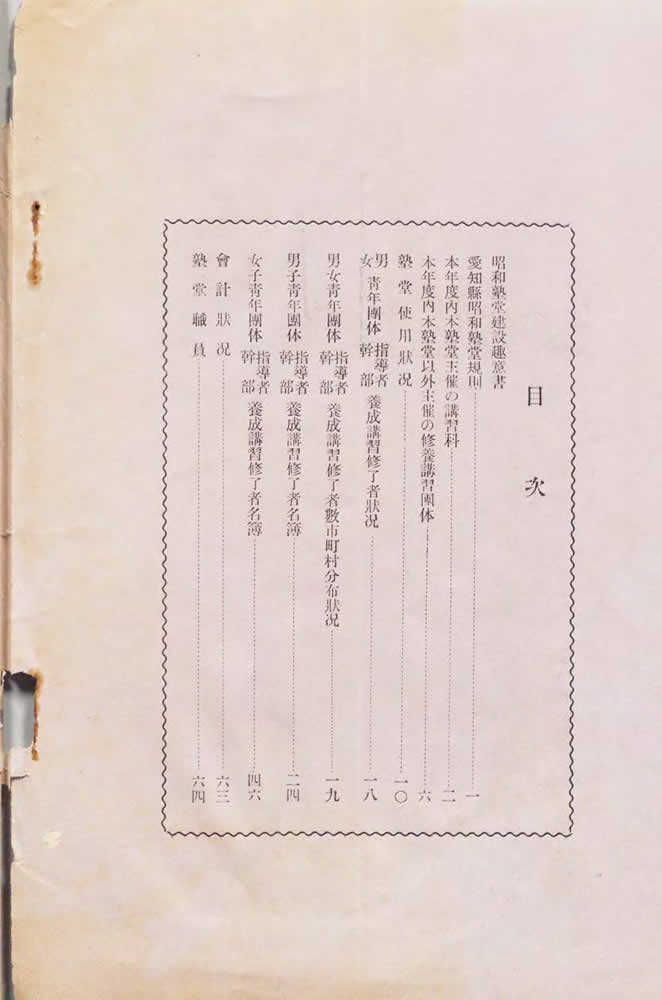 目次
昭和塾堂建設趣意書
愛知縣昭和塾堂規則……一
本年度內本塾堂主催の講習科……二
本年度內本塾堂以外主催の修養講習團体……六
塾堂使用狀况……一〇
男女青年團体指導者幹部養成講習修了者狀况……一八
男女青年團体指導者幹部養成講習修了者數市町村分布狀况……一九
男子青年團体指導者幹部養成講習修了者名簿……二四
女子青年團体指導者幹部養成講習修了者名簿……四六
會計狀况……六三
塾堂職員……六四